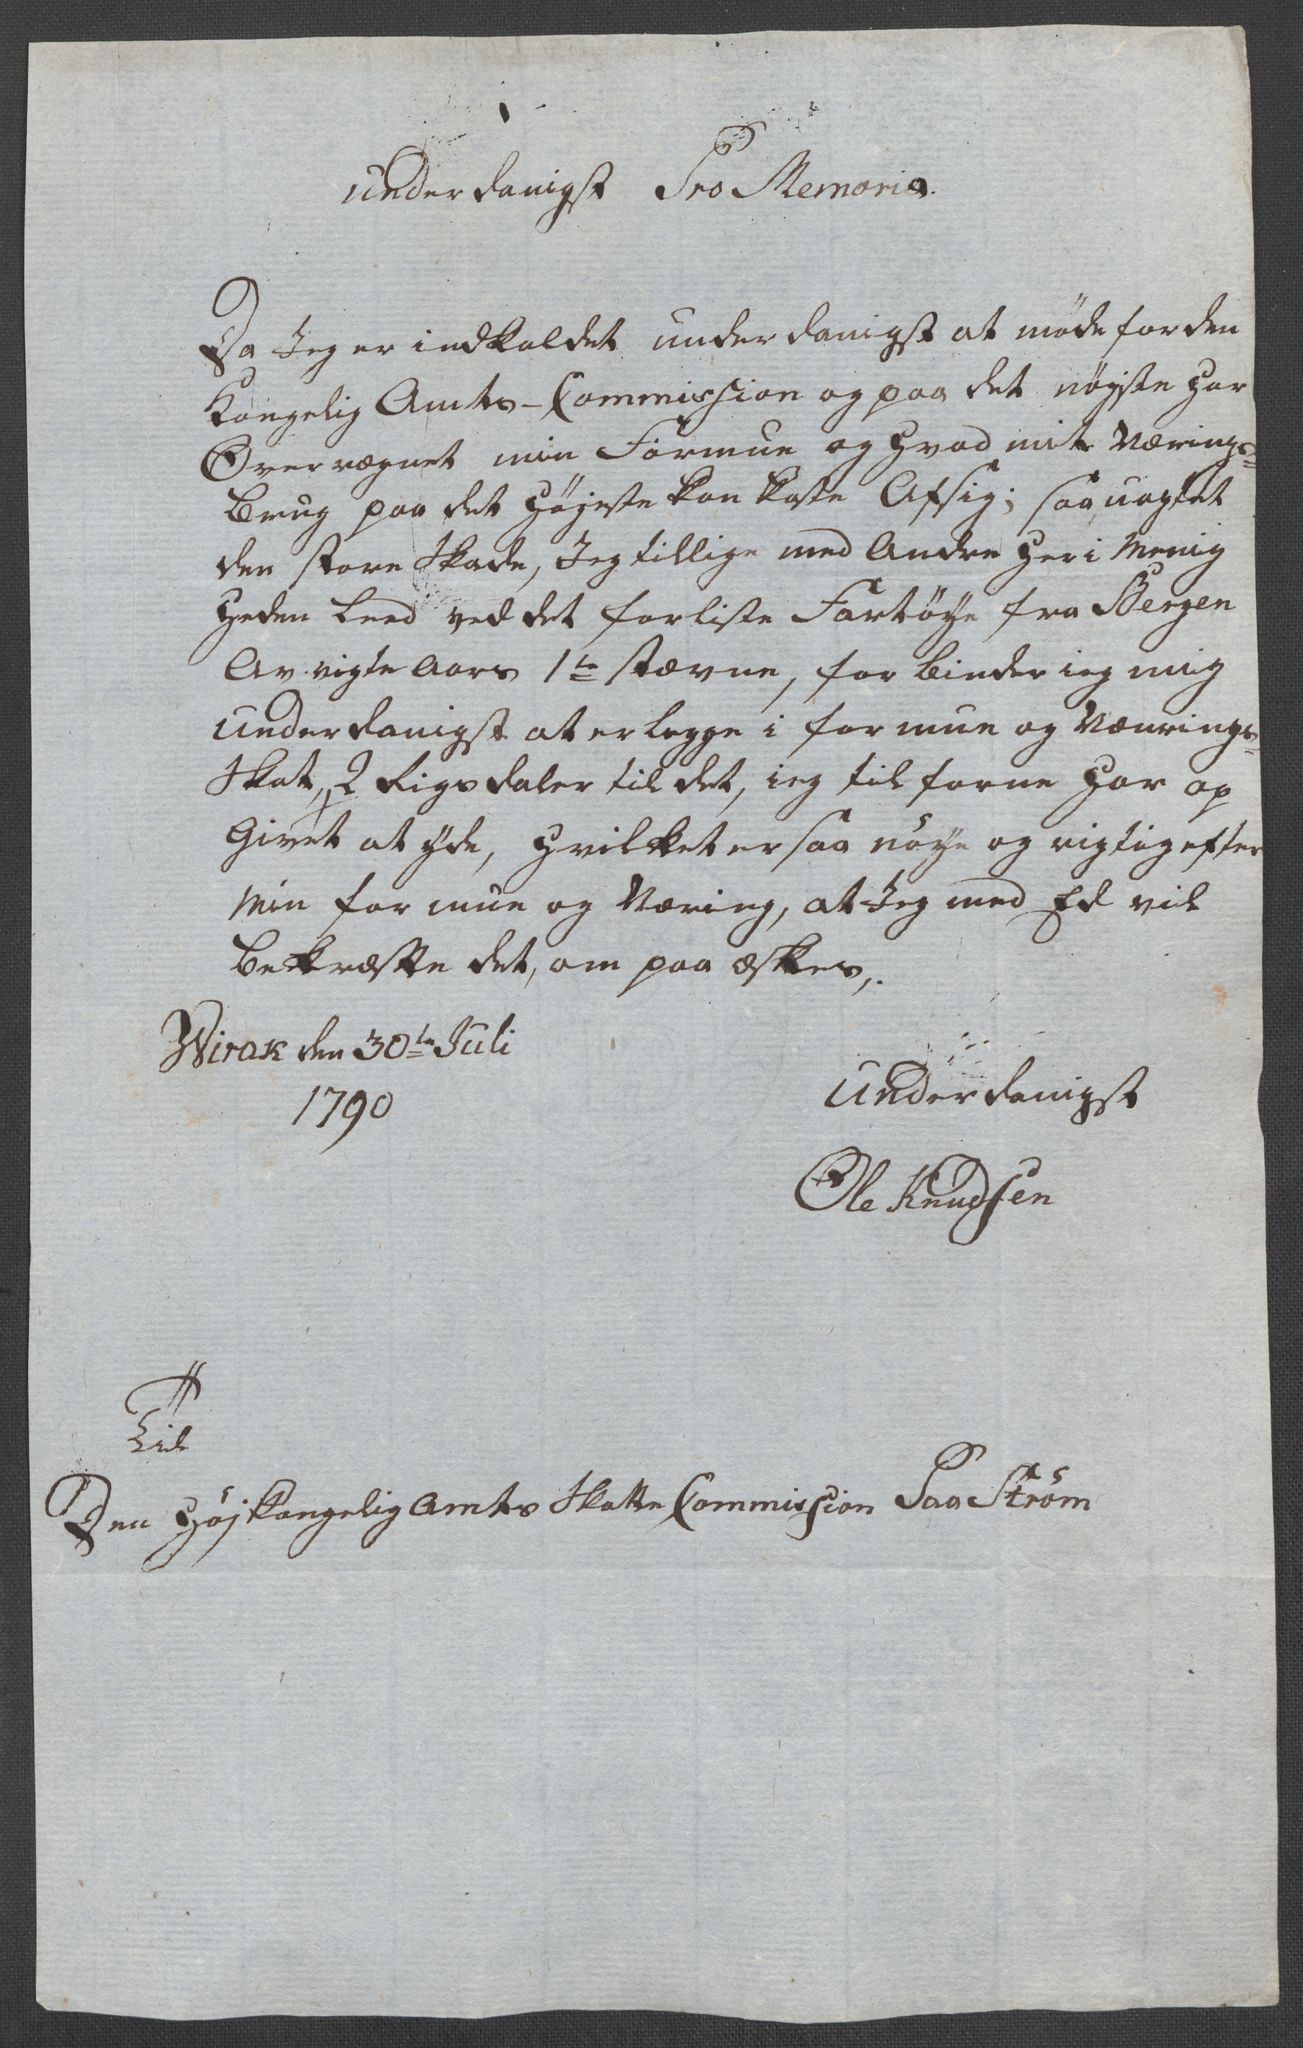 underdanigst Pro Memoria.
Da Jeg er indkaldet underdanigst at møde for den
Kongelig Amts-Commission og paa det nøyste har
Overregnet min Formue og hvad mit Nærings-
brug paa det høyeste kan kaste Afsig; saa uagtet
den store Skade, Jeg tillige med Andre her i Menig
heden leed ved det forliste Fartøye fra Bergen
Av vigte Aars 1te Stævne, forbinder ieg mig
underdanigst at erlegge i formue og Nærings-
Skat, 2 Rigsdaler til det, ieg tilforne har op
givet at yde, hvilket er saa nøye og rigtig efter
Min formue og Næring, at Jeg med Ed vil
bekræfte det, om paa æskes,.
Wirak den 30te Juli
1790
Underdanigst
Ole Knudsen
Til
Den Høykongelig Amts Skatte Commission Paa Strøm